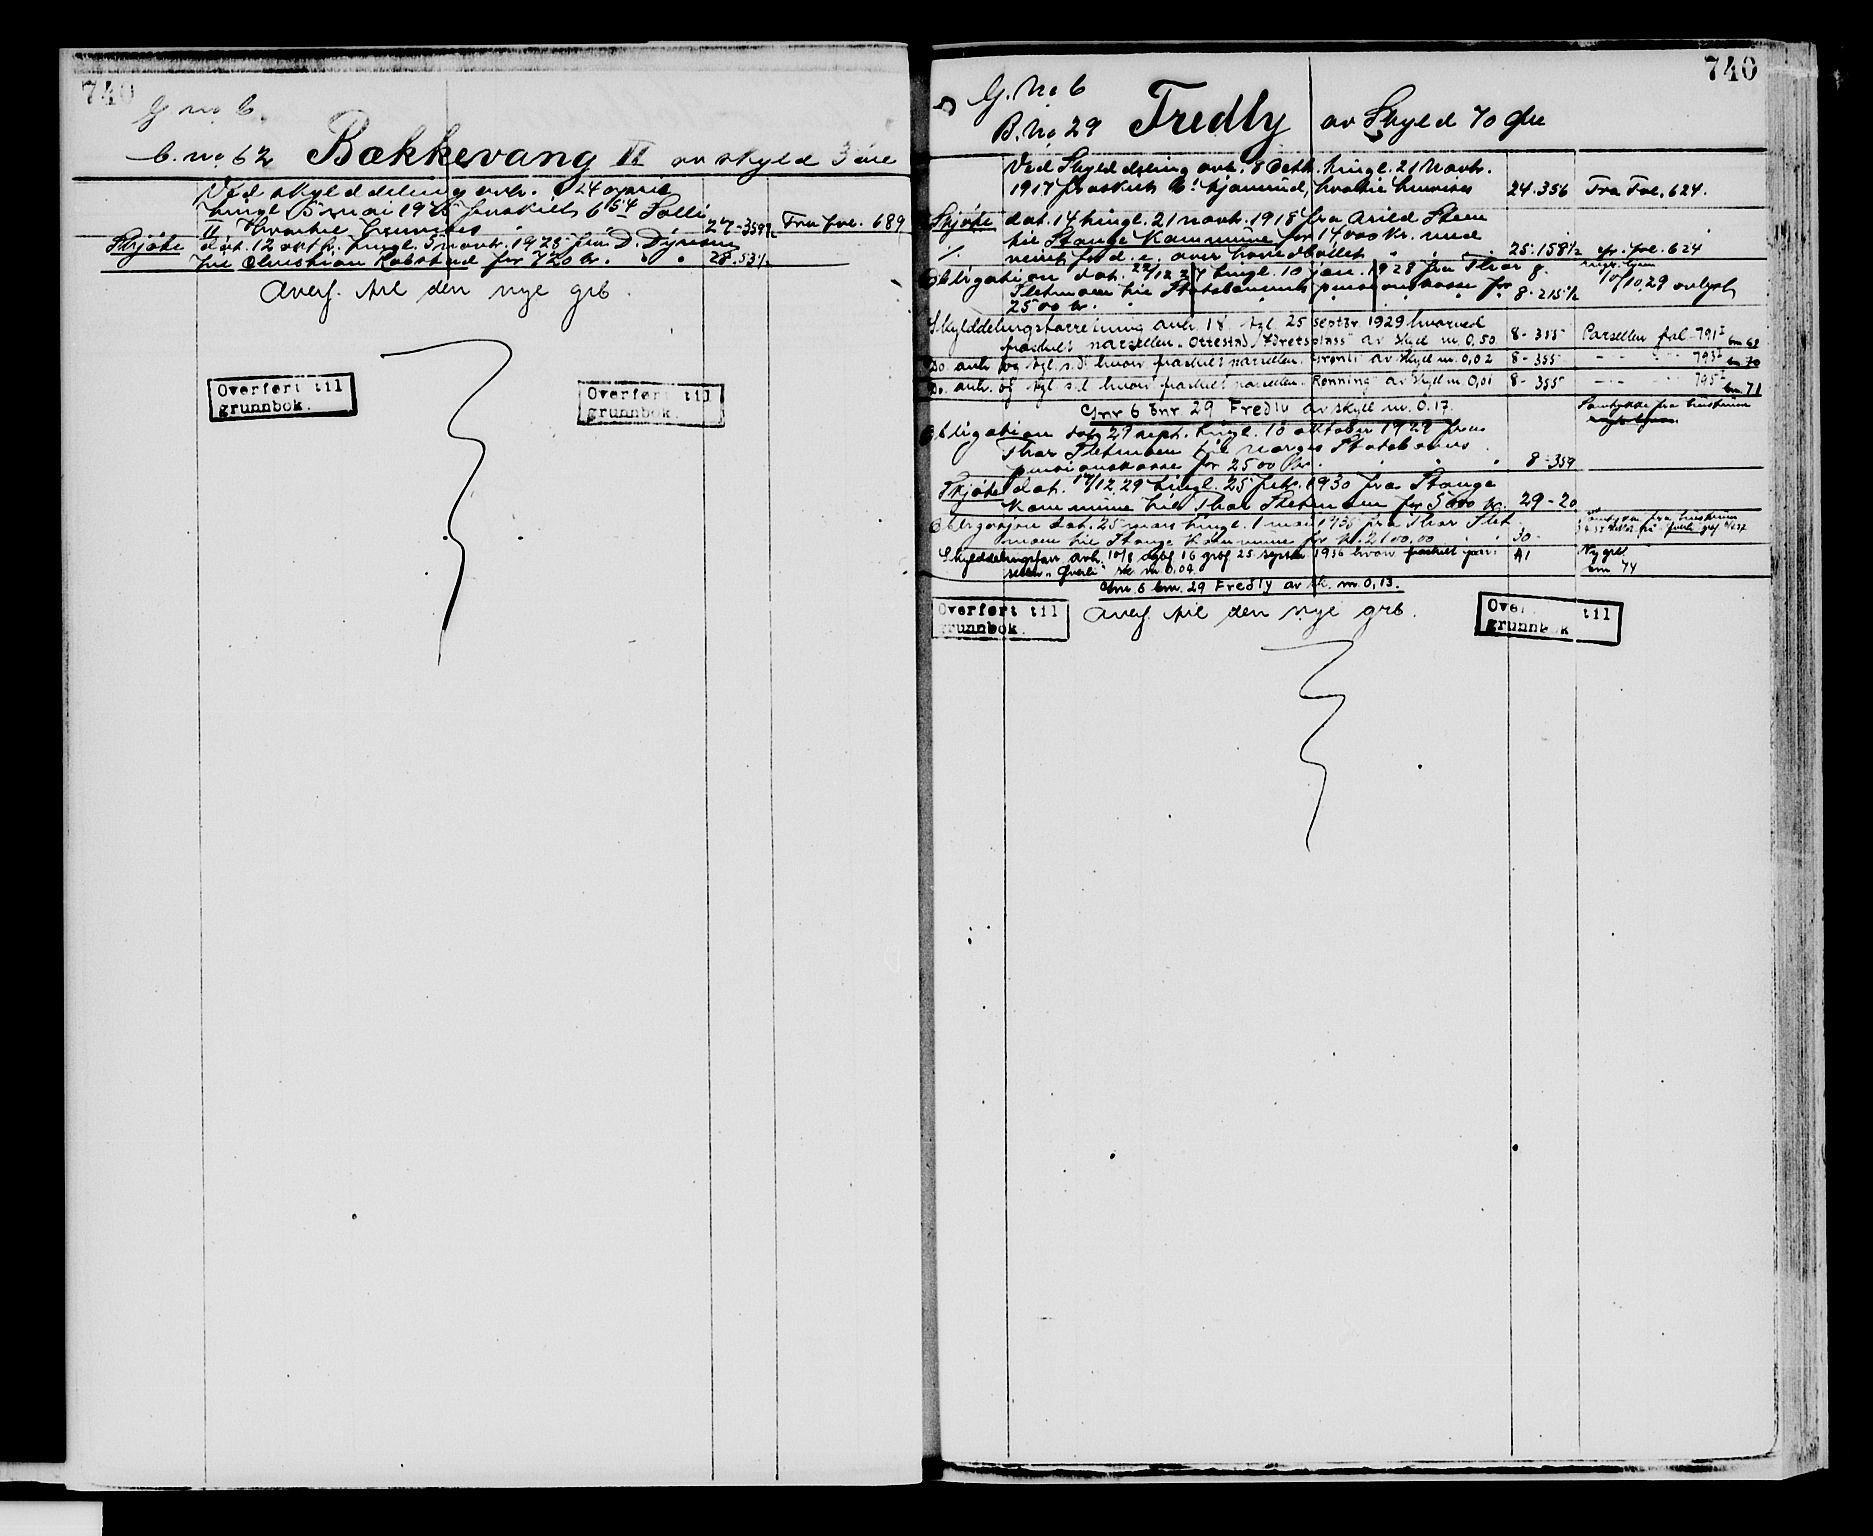 740
G. no 6.
b. no 62 Bækkevang II av skyld 3 øre
Ved skylddeling avh. 24 april
tingl. 5 mai 1925 fraskilt 6 54 Solli
II hvortil henvises 27-359½ Fra fol. 689
Skjøte dat. 12 oktbr. tingl. 5 novbr. 1925 fra D.
til Christian Kobstad for 720 kr. 28.531½
Overf. til den nye grb.
Overført til
grunnbok.
Overført til
grunnbok.
740
G. No 6
B. No 29 Fredly av Skyld 70 Øre
Ved Skylddeling avh. 8 Octb. tingl. 21 Novbr.
1917 fraskilt hvortil henvises 24.356 Fra Fol. 624.
Skjøte dat. 14 tingl. 21 novbr. 1918 fra Arild Steen
til Stange Kommune for 14000 kr. med
veiret for d. e. over hovedbøllet 25.158½ cfr. fol. 624
Obligation dat. 22/12 27 tingl. 10 jan. 1928 fra Thor 8.
Sletmoen til Statsbanernes pensionskasse for 8-215½ 10/10.29 avlyst
2500 kr.
Skylddelingsforretning avh. 18 tgl. 25 septbr. 1929 hvorved
fraskilt parsellen "Ottestad Idretsplass" av skyld m. 0,50 8-355 Parsellen fol 791 bn 69
Do. avh. og tgl. s.d. hvorv. fraskilt parsellen Grønli av skyld m. 0,02 8-355 793 bn 70
Do. avh. og tgl. s.d. hvorv. fraskilt parsellen Rønning av Skyld m 0,01 8-355 795 bn 71
Gnr 6 bnr 29 Fredly av skyld m. 0.17.
Samtykke fra hustruen
Obligation dat. 29 sept. tingl. 10 oktober 1929 fra
Thor Sletmoen til Norges Statsbaners
pensionskasse for 2500 kr. 8-359
Skjøte dat. 17/12 29 tingl. 25 febr. 1930 fra Stange
kommune til Thor Sletmoen for 5000 kr. 29-20
Obligasjon dat. 25 mars tingl. 1 mai 1935 fra Thor Slet-
moen til Stange Kommune for kr. 2100,00 30-
Skylddelingsforr. avh. 10/8 dgbf 16 grbf 25 septbr 1936 hvorv fraskilt par- A1 Ny grb
sellen "Øverli" sk. m 0.04. bnr 74
Gnr. 6 bnr. 29 Fredly av sk. m. 0,13.
Overf. til den nye grb.
Overført til
grunnbok.
til
grunnbok